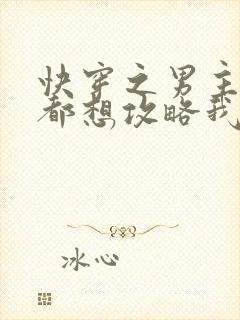 快穿之男主
都想攻略我
冰心